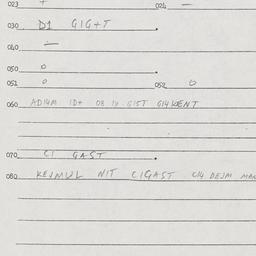 023 + 024 —
030 D1 GIG+T .
040 —
050 0 .
051 0 052 0
060 ADI4M ID+ 08
070 C1 GAST .
080 KEJMUL NIT CIGAST C14 DEJM